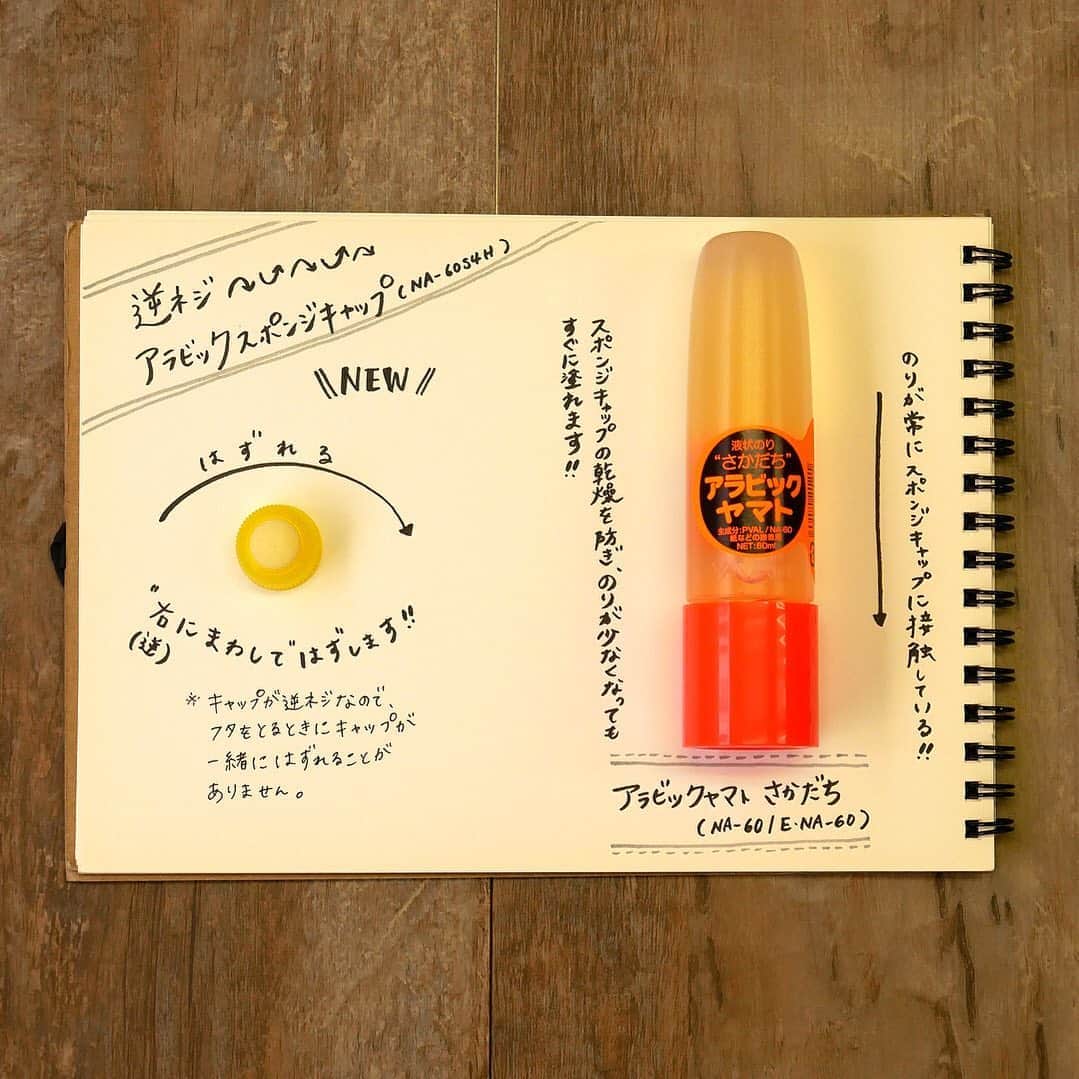 逆ネジ
アラビックスポンジキャップ(NA-60S4H)
NEW
はずれる
"右にまわしてはずします!!
(逆)
※キャップが逆ネジなので、
フタをとるときにキャップが
一緒にはずれることが
ありません。
スポンジキャップの乾燥を防ぎ、のりが少なくなっても
すぐに塗れます!!
液状のり
"さかだち"
アラビック
ヤマト
主成分:PVAL/NA-60
紙などの接着用
NET:60ml
のりが常にスポンジキャップに接触している!!
アラビックヤマト さかだち
(NA-60/E・NA-60)